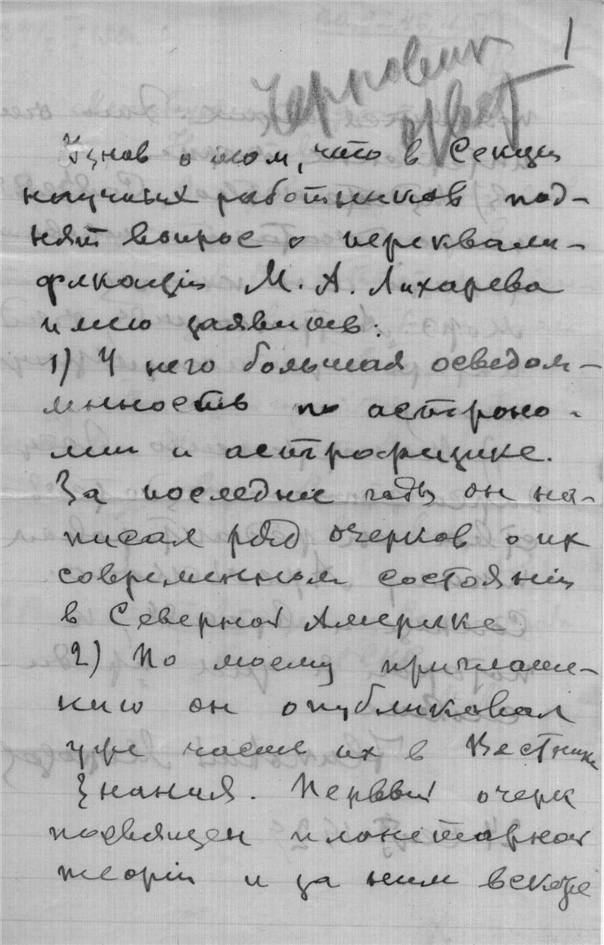 1
Черновик
ответ
Узнав о том, что в Секции
научных работников под-
нят вопрос о переквали-
фикаціи М. А. Лихарева
имею заявить:
1) У него большая осведом-
мнность по астроно-
мии и астрофизике.
За последние годы он на-
писал ряд очерков о их
современном состояніи
в Северной Америке
2) По моему приглаше-
нию он опубликовал
уже часть их в Вестнике
Знания. Первый очерк
посвящен планетарной
теоріи и за ним вскоре